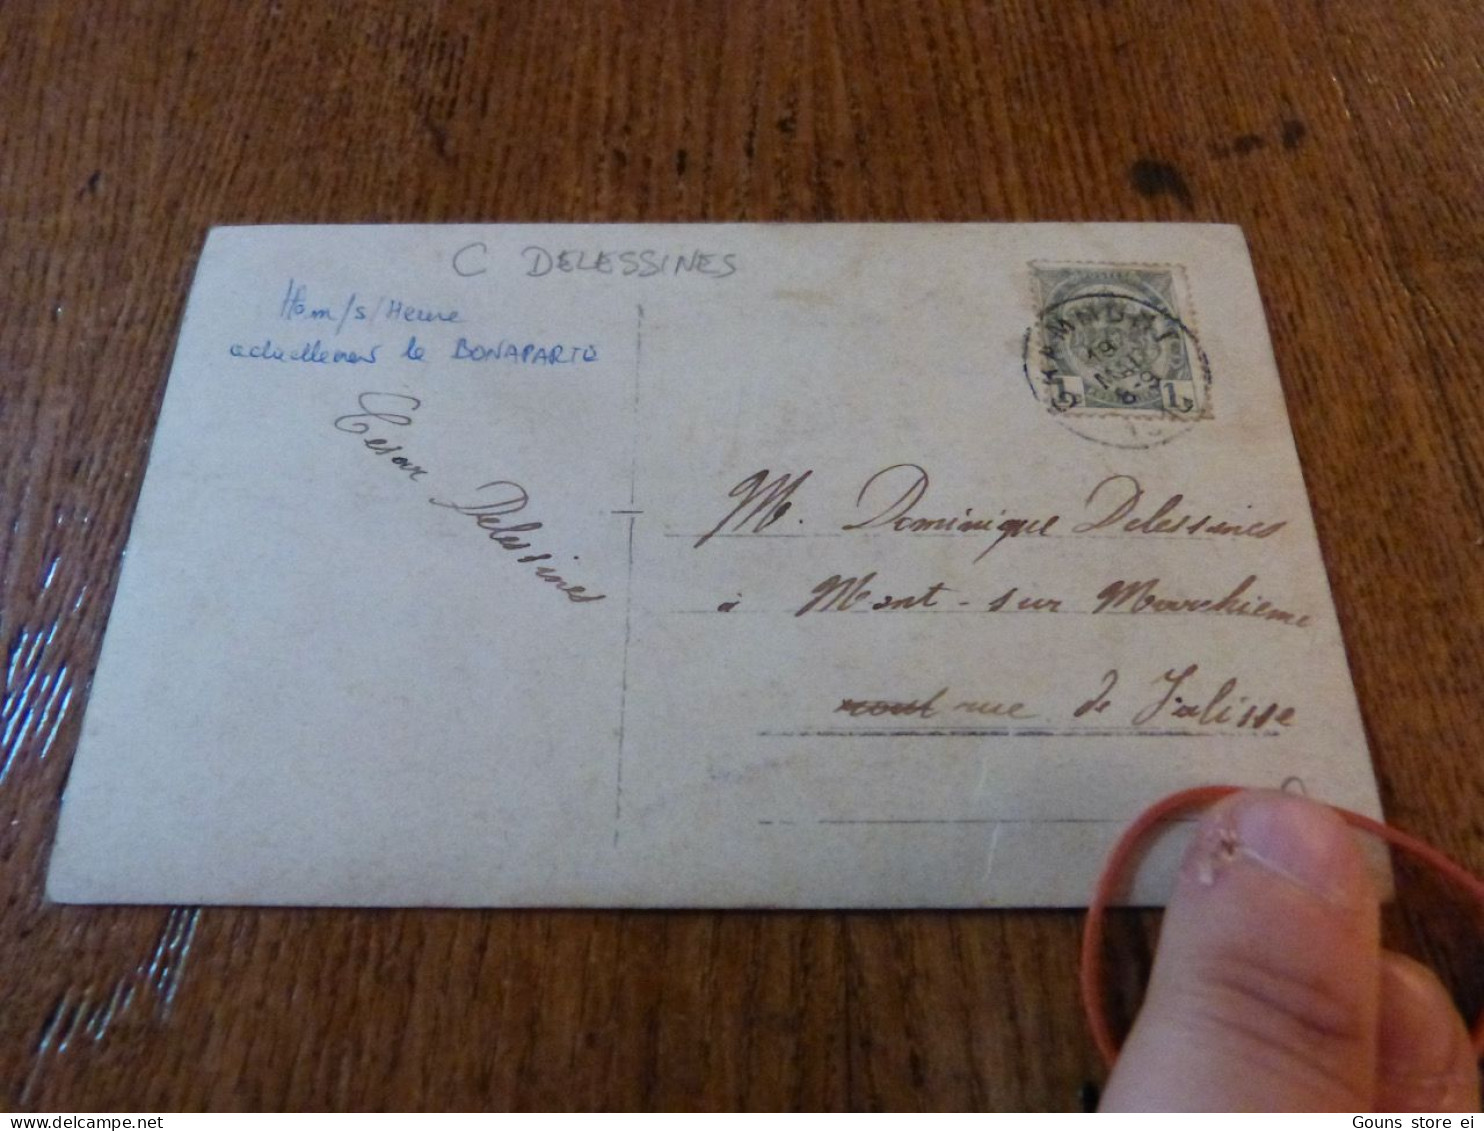 C DELESSINES
Ham/s/Heure
actuellement le BONAPARTE
Cesar Delessines
1 1
M. Dominique Delessines
à Mont-sur Marchienne
rue de Jalisse
Gouns store ei